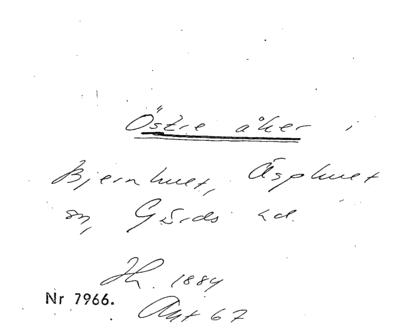 Östre åker i
Bjernhult, Äsphult
sn, Gärds hd.
Jh. 1884
Nr 7966.
Akt 67